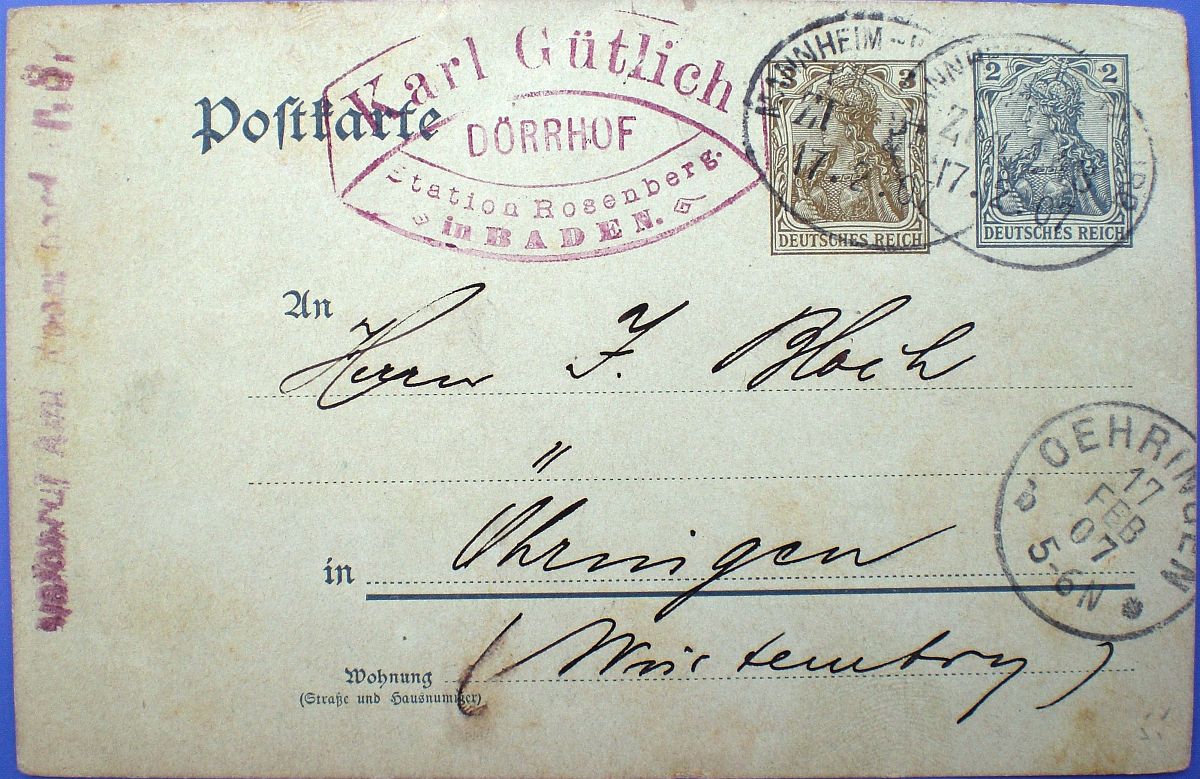 Karl Gütlich
DÖRRHOF
Station Rosenberg.
in BADEN.
Postkarte
MANNHEIM
17. 2.
3
DEUTSCHES REICH
17. 2. 07
2 2
DEUTSCHES REICH
An
Herrn J. Bloch
"
in Öhringen
(Württembrg)
Wohnung
(Straße und Hausnummer)
OEHRINGEN
17
FEB
07
5-6N